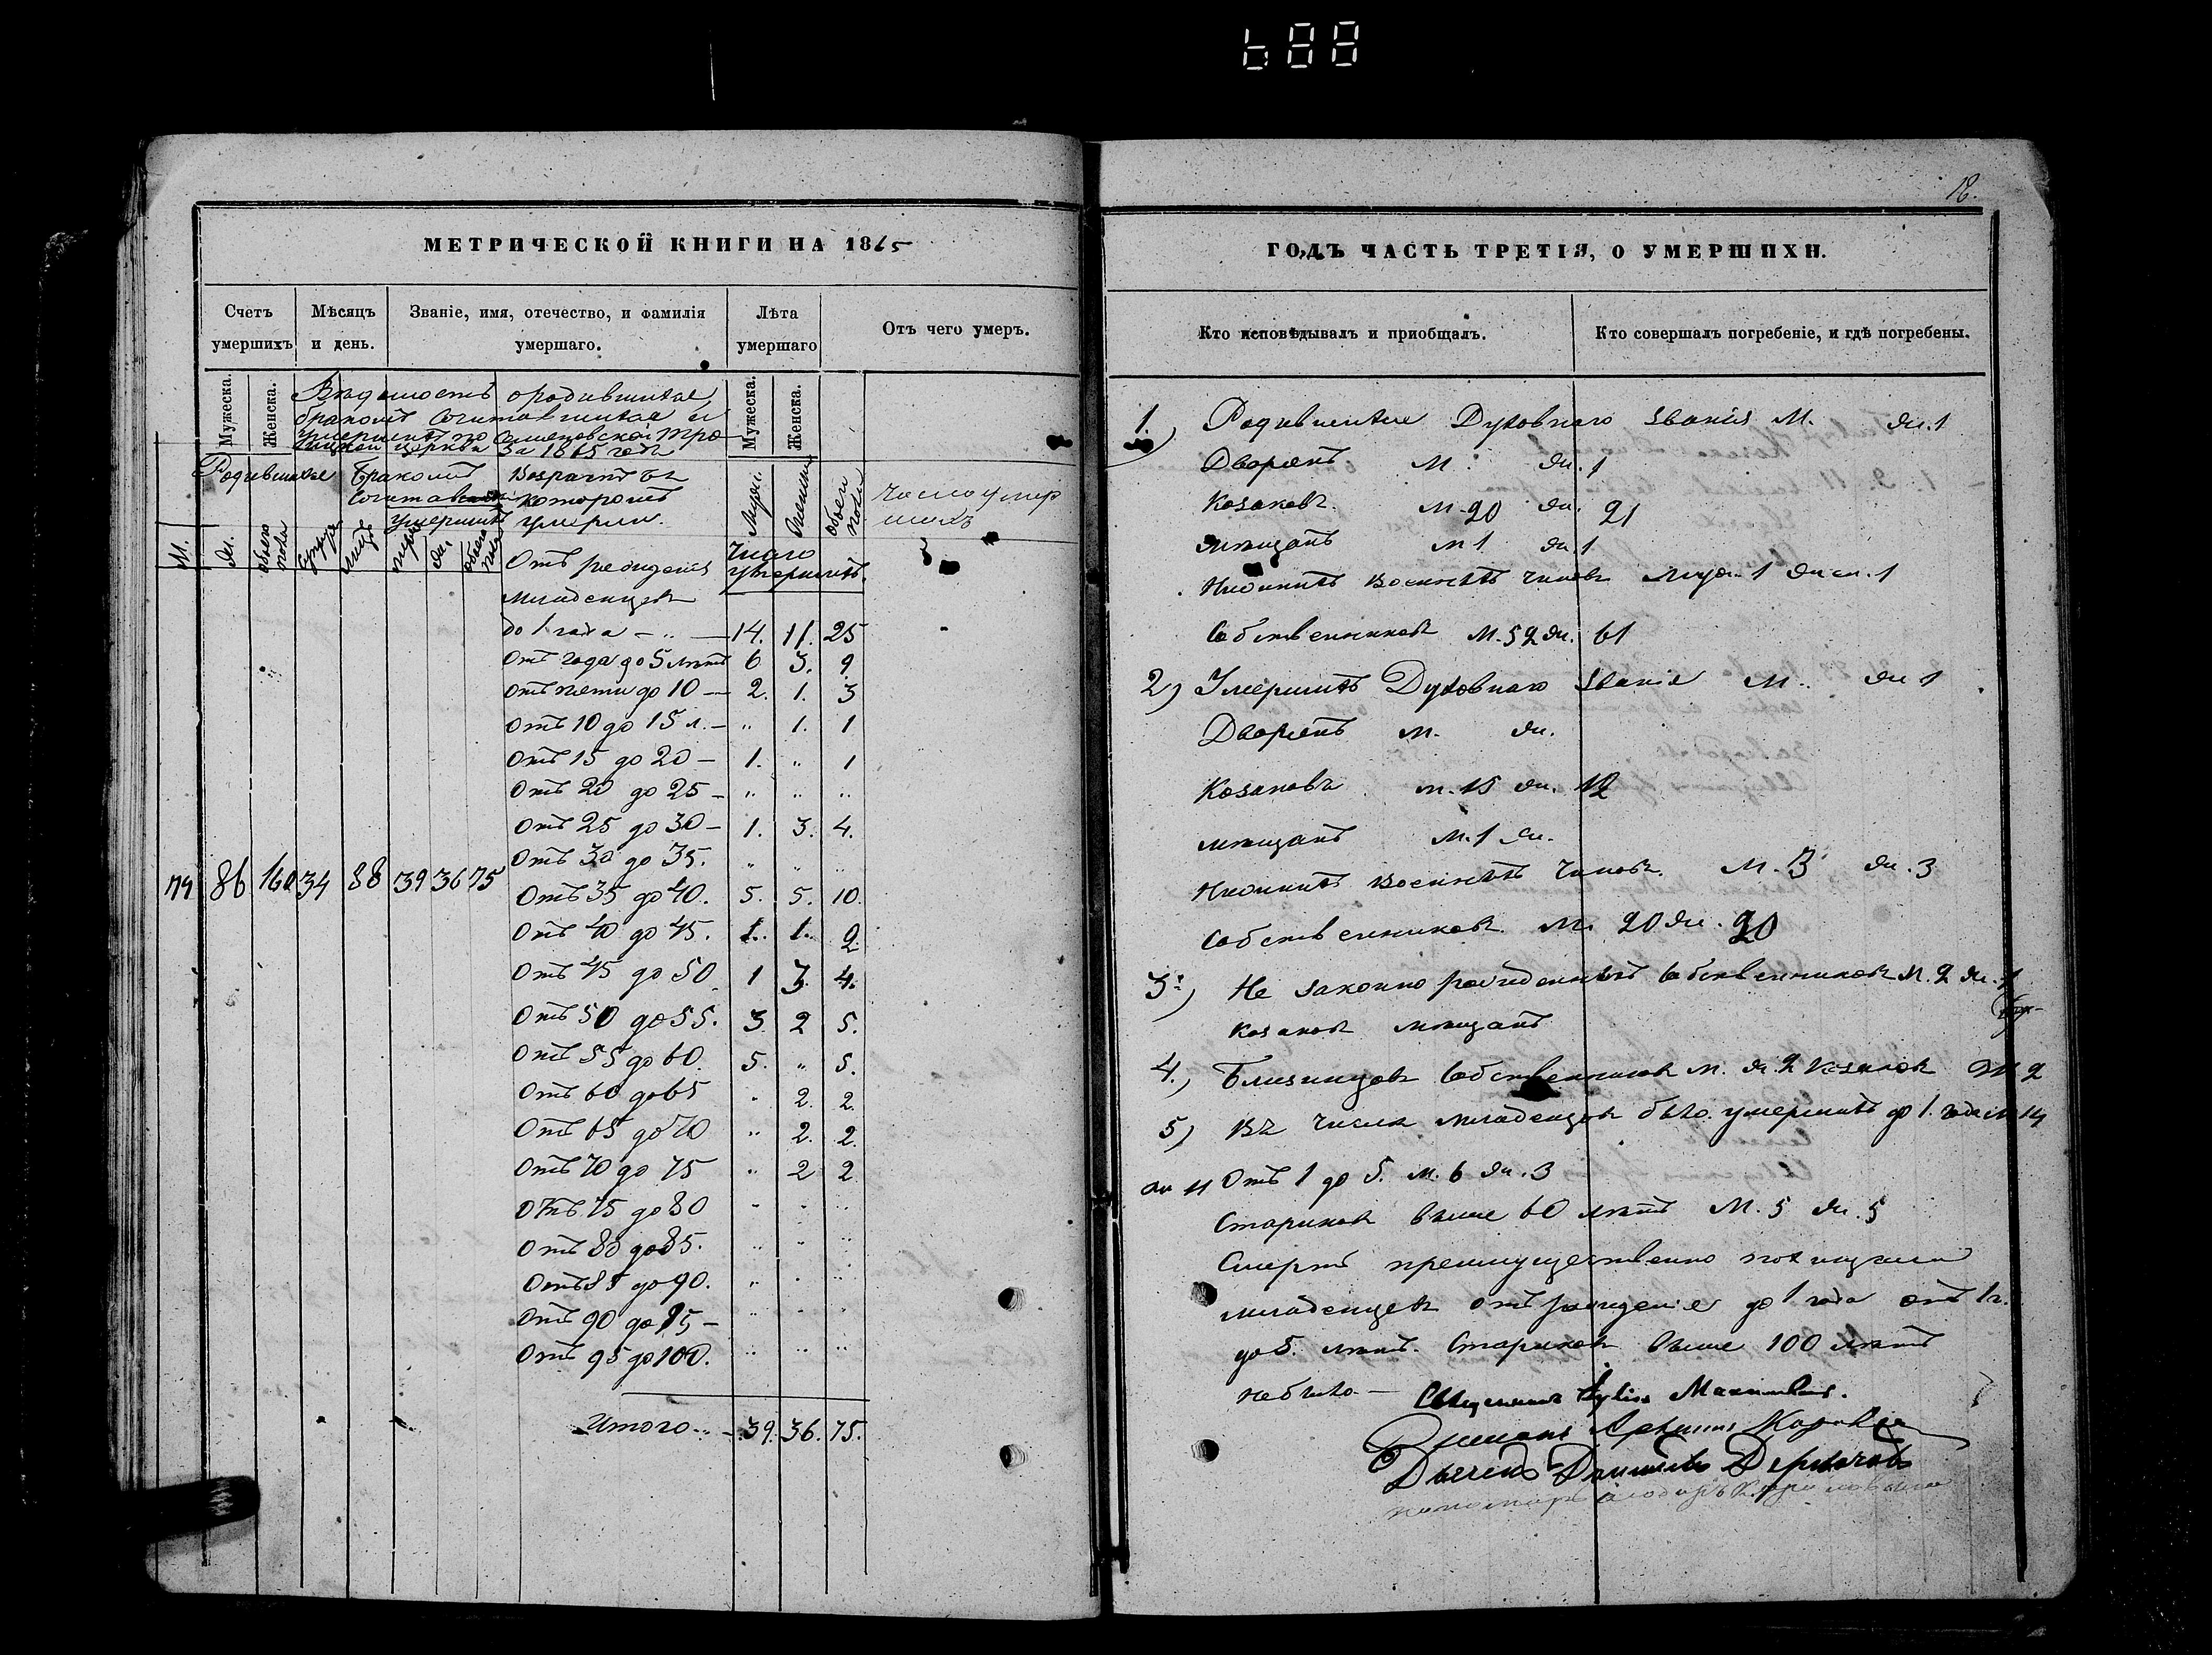 18.
МЕТРИЧЕСКОЙ КНИГИ НА 1865
Счетъ умершихъ
Мѣсяцъ и день.
Званіе, имя, отечество, и фамилія умершаго.
Лѣта умершаго
Отъ чего умеръ.
Мужеска.
Женска.
Мужеска.
Женска.
Вѣдомость о родившихся
бракомъ сочитавшихся и
умершихъ по Троицкой церкви за 1865 годъ
Родившихся
Бракомъ
Возрастъ въ
которомъ
умершихъ умерли.
М.
Жен.
обоего пола
лицъ
обоего пола
число умершихъ
Отъ рожденія
Число умершихъ.
младенцевъ
до 1 года - " - 14. 11. 25
Отъ года до 5 лѣтъ 6 3. 9
отъ пяти до 10 - 2. 1. 3
отъ 10 до 15 л. - " 1. 1
отъ 15 до 20 - 1. " 1
Отъ 20 до 25 - " " "
Отъ 25 до 30 - 1. 3. 4.
Отъ 30 до 35. " " "
74 86 160 34 88 39 36 75
Отъ 35 до 40. 5. 5. 10.
Отъ 40 до 45. 1. 1. 2.
Отъ 45 до 50 1 3. 4.
Отъ 50 до 55. 3. 2 5.
Отъ 55 до 60. 5. " 5.
Отъ 60 до 65 " 2. 2.
Отъ 65 до 70 " 2. 2.
Отъ 70 до 75 " 2 2
Отъ 75 до 80 " " "
Отъ 80 до 85. " " "
Отъ 85 до 90. " " "
Отъ 90 до 95 - " " "
Отъ 95 до 100. " " "
Итого - 39. 36. 75.
ГОДЪ ЧАСТЬ ТРЕТІЯ, О УМЕРШИХЪ.
Кто исповѣдывалъ и приобщалъ.
Кто совершалъ погребеніе, и гдѣ погребены.
1.) Родившихся Духовнаго званія М. Жи. 1
Дворянъ М. Жи. 1
Козаковъ. М. 20 Жи. 21
мѣщанъ М 1 Жи. 1
Нижнихъ военныхъ чиновъ Муж. 1 Жен. 1
Собственниковъ М. 52 Жи. 61
2) Умершихъ Духовнаго званія М. Жи 1
Дворянъ М. Жи.
Козаковъ М. 15 Жи. 12
мѣщанъ М. 1 Жи.
Нижнихъ военныхъ чиновъ. М. 3 Жи. 3
Собственниковъ М. 20 Жи. 20
3.) Не законно рожденныхъ собственниковъ М. 2 Жи. 1
козаковъ мѣщанъ
4.) Близнецовъ собственниковъ М. Жи. 2 козаковъ М 2
5) Въ числѣ младенцовъ было умершихъ до 1. года М 14
Жи 11 Отъ 1 до 5. М. 6 Жи. 3
Стариковъ выше 60 лѣтъ М. 5 Жи. 5
Смерть преимущественно похищала
младенцевъ отъ рожденія до 1 года отъ 1 г.
до 5. лѣтъ. Стариковъ выше 100 лѣтъ
небыло -
Священникъ